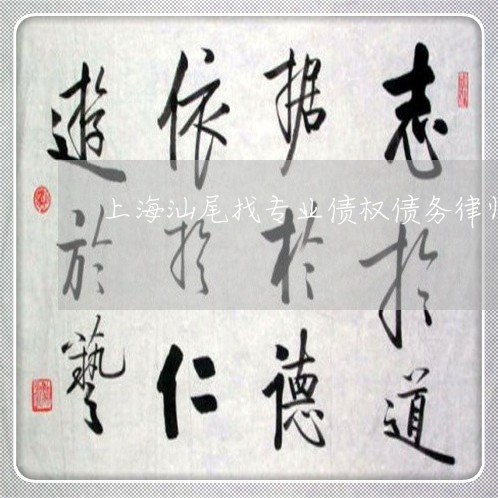 志於道
据於德
依於仁
遊於藝
上海汕尾找专业债权债务律